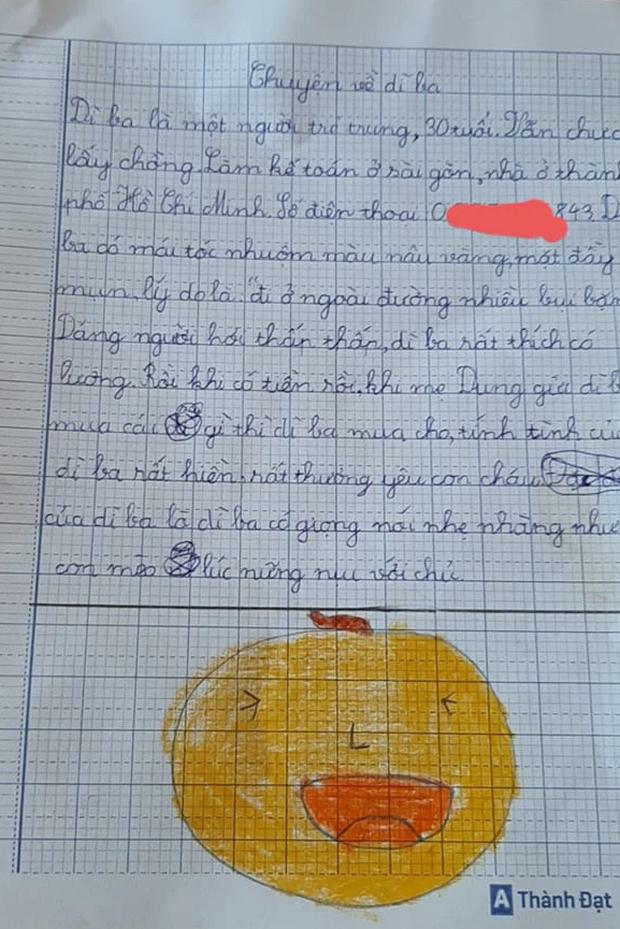 Chuyện về dì ba
Dì ba là một người trẻ trung, 30 tuổi. Vẫn chưa
lấy chồng. Làm kế toán ở sài gòn, nhà ở thàn
phố Hồ Chí Minh. Số điện thoại 0 843. D
ba có mái tóc nhuộm màu nâu vàng, mặt đầy
mụn, lý do là "đi ở ngoài đường nhiều bụi bặm
Dáng người hơi thấn thấn, dì ba rất thích có
lương. Rồi khi có tiền rồi, khi mẹ Dung giú dì b
mua cái gì thì dì ba mua cho, tính tình củ
dì ba rất hiền, rất thương yêu con cháu
của dì ba là dì ba có giọng nói nhẹ nhàng như
con mèo lúc nũng nịu với chủ.
A Thành Đạt